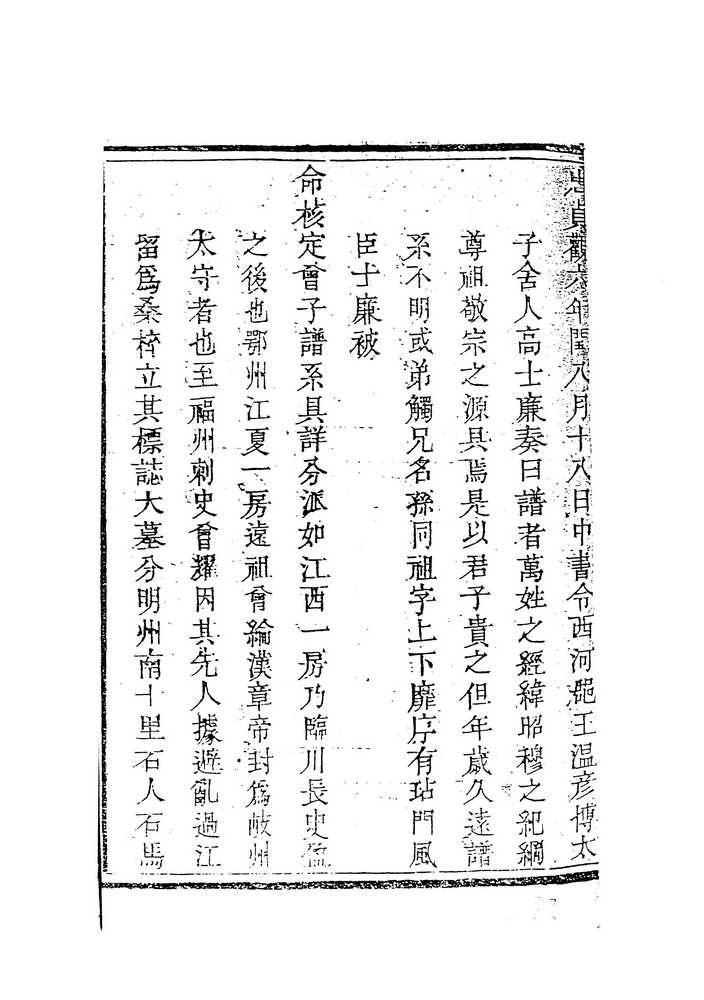 貞觀六年閏八月十八日中書令西河郡王温彦博太
子舍人高士廉奏曰譜者萬姓之經緯昭穆之紀綱
尊祖敬宗之源具焉是以君子貴之但年歲久遠譜
系不明或弟觸兄名孫同祖字上下靡序有玷門風
臣士廉被
命核定曾子譜系具詳分派如江西一房乃臨川長史
之後也鄂州江夏一房遠祖曾綸漢章帝封爲岐州
太守者也至福州刺史曾耀因其先人據避亂過江
留爲桑梓立其標誌大墓分明州南十里石人石馬